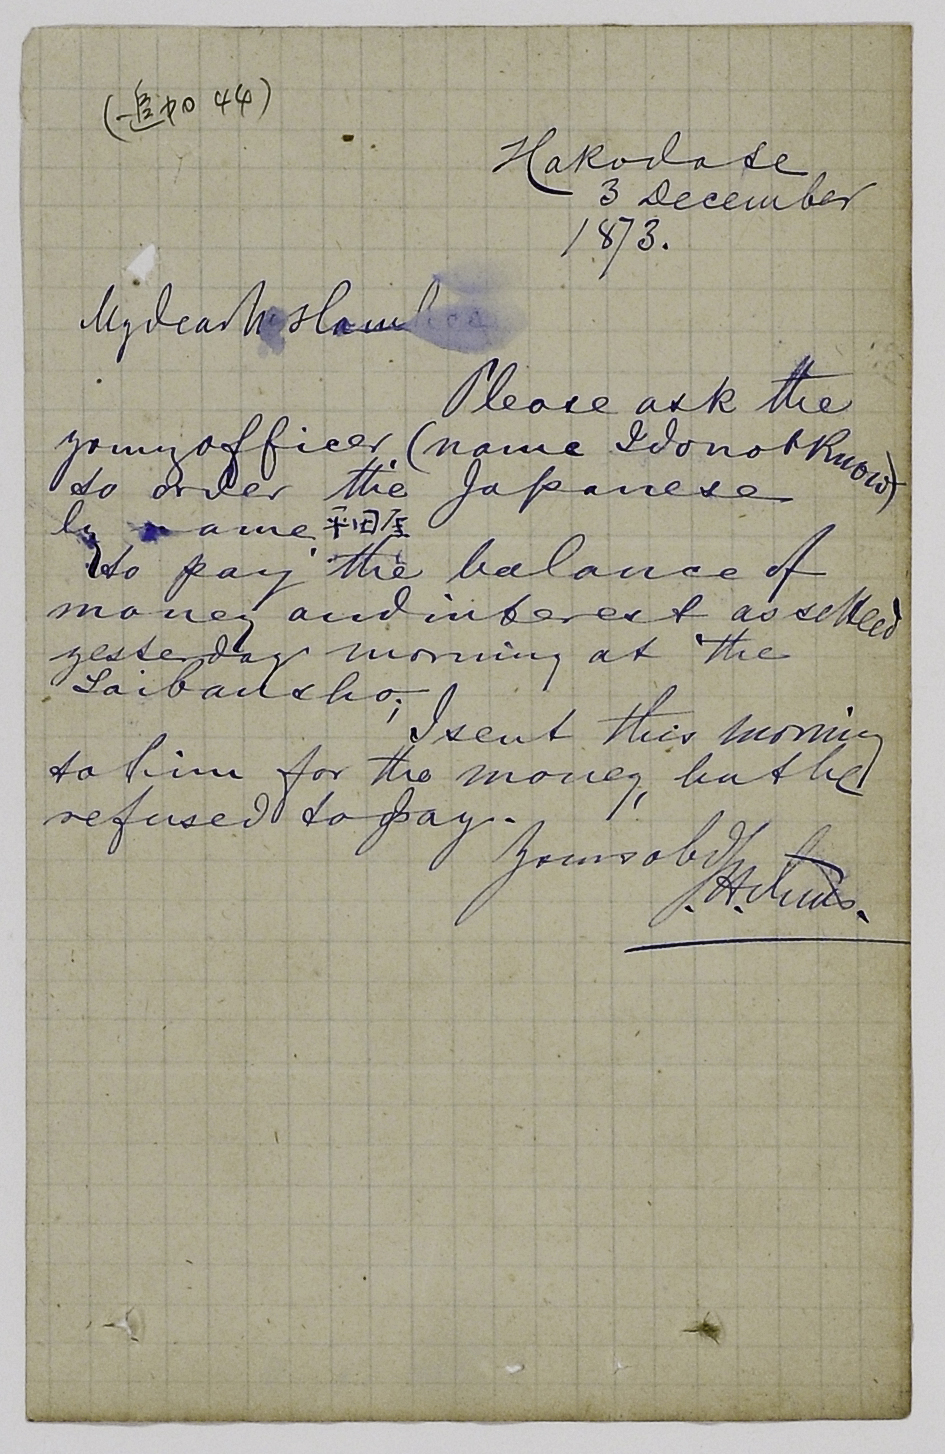 (追加 44)
Hakodate
3 December
1873.
My dear Mr
Please ask the
young officer (name I do not know)
to order the Japanese
by name 平田屋
to pay the balance of
money and interest as settled
yesterday morning at the
Saibansho;
I sent this morning
to him for the money, but he
refused to pay.
Yours obdly
J. H.